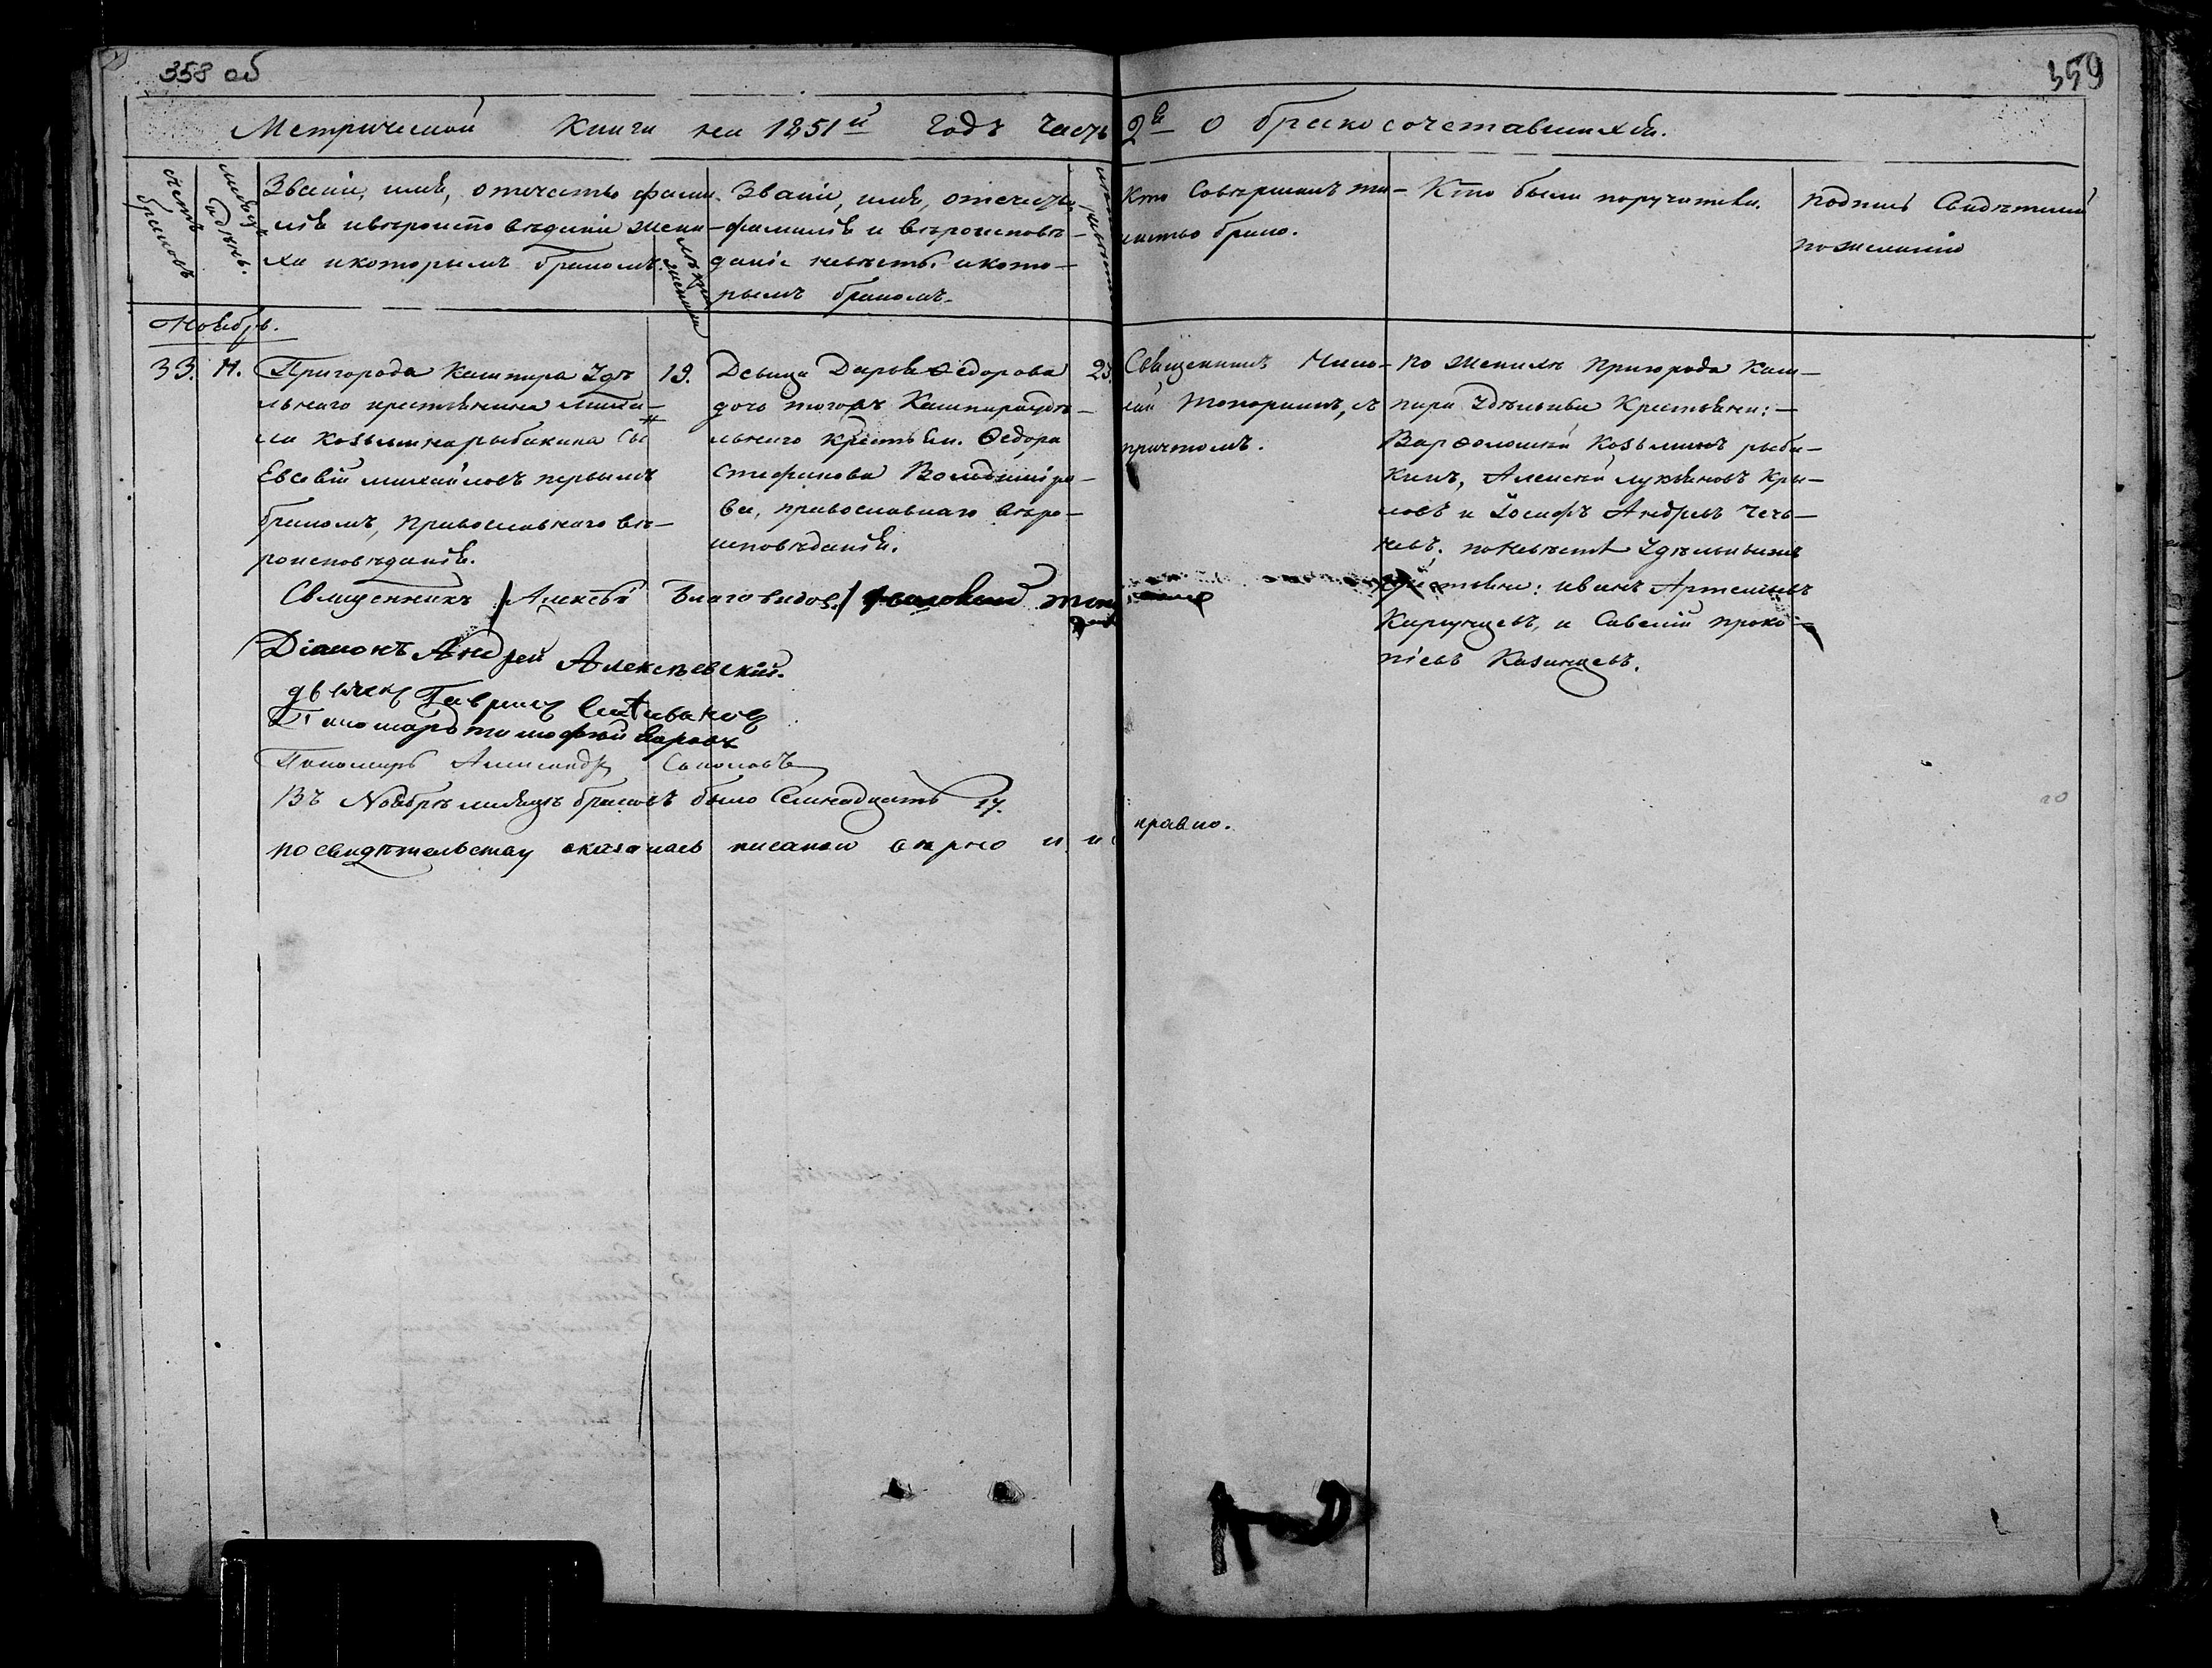 358 об
359
Метрической Книги на 1851й Годъ Часть 2я О бракосочетавшихся.
Счетъ браковъ
Мѣсяцъ и день.
Званіе, имя, отечество фами-
лія и вѣроисповѣданіе жени-
ха и которымъ бракомъ.
Лѣта жениха
Званіе, имя, отечество,
фамилія и вѣроисповѣ-
даніе невѣсты. и кото-
рымъ бракомъ.
Кто Совершалъ та-
инство брака.
Кто были поручители.
Подпись Свидѣтелей
по желанію
Ноябрь.
33. 11.
Пригорода Кашпира Удѣ
льнаго крестьянина Михаи-
ла Козьмина рыбакина Сы
Евсевій михайловъ первымъ
бракомъ, Православнаго вѣ-
роисповѣданія.
19.
Девица Дарья Ѳедорова
дочь тогожъ Кашпира удѣ-
льнаго Крестьян. Ѳедора
Стефанова Володимiро-
ва, православнаго вѣро-
исповѣданія.
Священникъ Нико-
лай Топорнинъ, съ
причтомъ.
По женихѣ Пригорода Каш-
пира Удѣльныя Крестьяни: -
Варѳоломей Козьминъ рыба-
кинъ, Алексѣй лукьяновъ Кры-
ловъ и Іосифъ Андреевъ Чечь-
невъ. по Невѣстѣ Удѣльныижъ
крестьяни: иванъ Артемьевъ
Карпунцевъ, и Савелій проко-
піевъ Казинцевъ.
Священникъ /Алексѣй Благовидов./
Діаконъ Андрей Алексѣевскій.
дьячекъ Гаврилъ
Пономарь тимофей
Пономарь Александръ Соколовъ
Въ Ноябрѣ мѣсяцѣ браковъ было Семнадцать 17.
По свидѣтельству оказалась писаной вѣрно и и
справно.